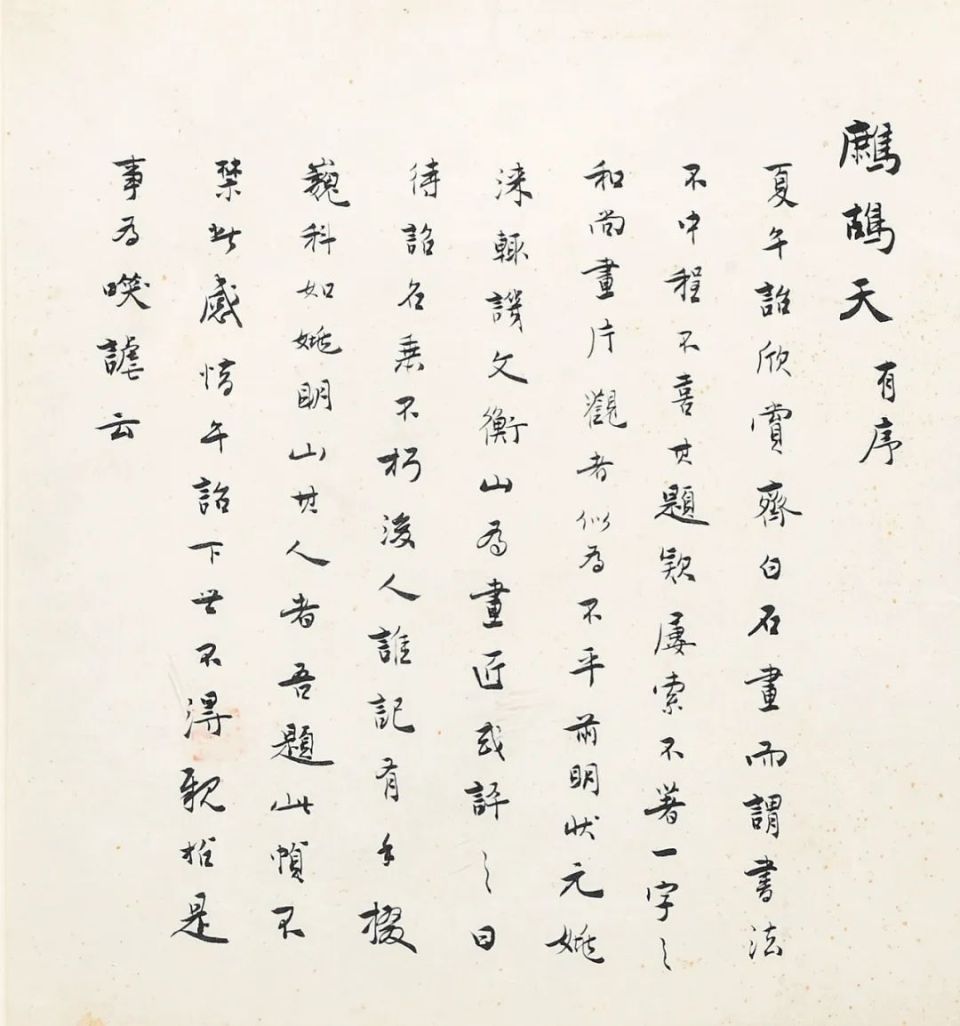 鷓鴣天 有序
夏午詒欣賞齊白石畫而謂書法
不中程不喜其題欵屢索不著一字〻
和尚畫片觀者似為不平前明狀元姚
淶輒謗文衡山為畫匠或評〻曰
待詔名垂不朽後人誰記有手掇
巍科如姚明山其人者吾題此幀不
禁感午詒下世不得親是
事為謔云